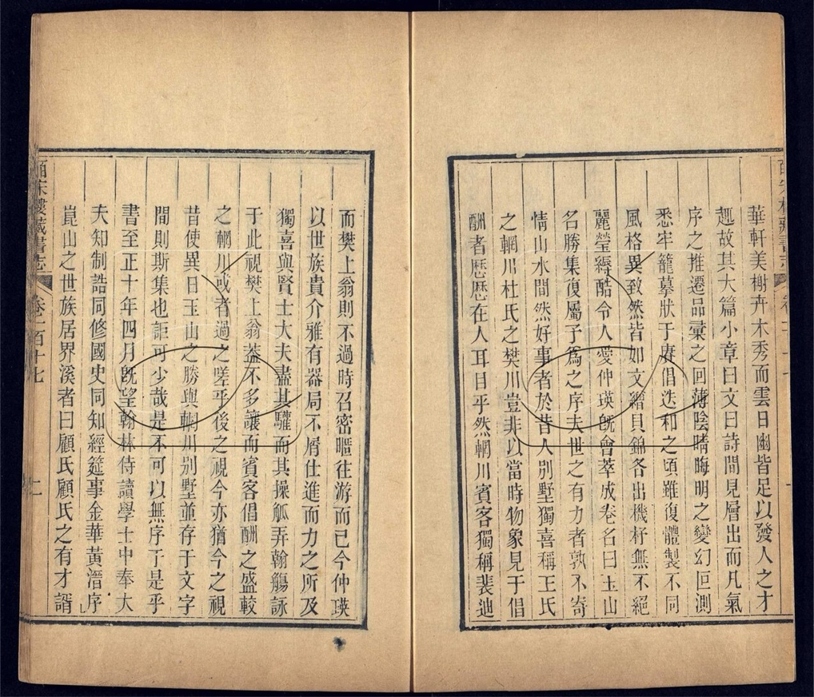 華軒美榭卉木秀而雲日幽皆足以發人之才
趣故其大篇小章曰文曰詩間見層出而凡氣
序之推遷品彙之回薄陰晴晦明之變幻叵測
悉牢籠摹狀于賡倡迭和之頃雖復體製不同
風格異致然皆如文繒貝錦各出機杼無不絕
麗瑩縟酷令人愛仲瑛旣會萃成卷名曰玉山
名勝集復屬予爲之序夫世之有力者孰不寄
情山水間然好事者於昔人別墅獨喜稱王氏
之輞川杜氏之樊川豈非以當時物象見于倡
酬者歷歷在人耳目乎然輞川賓客獨稱裴迪
而樊上翁則不過時召密暱往游而已今仲瑛
以世族貴介雅有器局不屑仕進而力之所及
獨喜與賢士大夫盡其驩而其操觚弄翰觴詠
于此視樊上翁蓋不多讓而賓客倡酬之盛較
之輞川或者過之嗟乎後之視今亦猶今之視
昔使異日玉山之勝與輞川別墅並存于文字
間則斯集也詎可少哉是不可以無序于是乎
書至正十年四月旣望翰林侍讀學士中奉大
夫知制誥同修國史同知經筵事金華黃溍序
崑山之世族居界溪者曰顧氏顧氏之有才諝
皕宋樓藏書志 卷一百十七